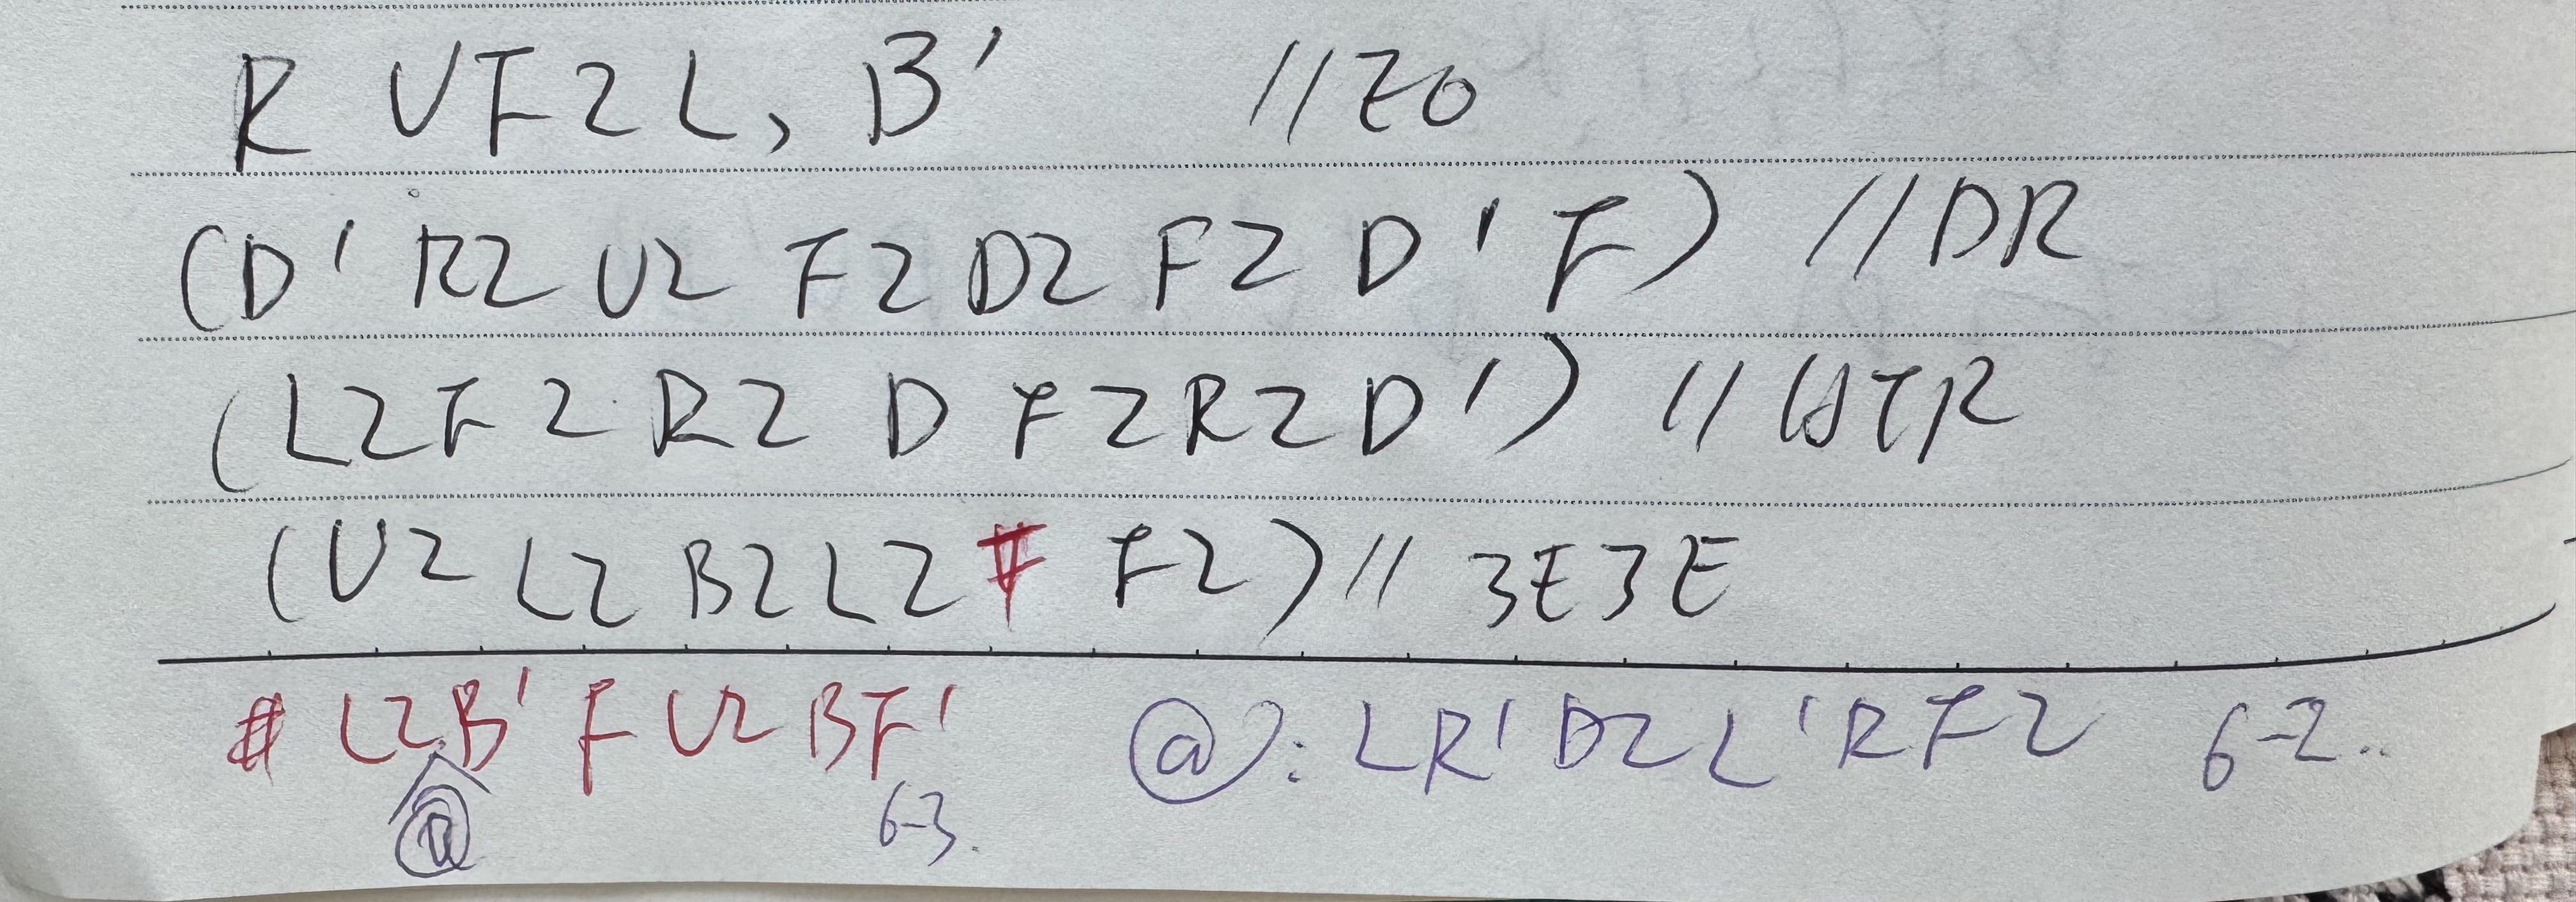 R U F2 L, B' //EO
(D' R2 U2 F2 D2 F2 D' F) //DR
(L2 F2 R2 D F2 R2 D') // HTR
(U2 L2 B2 L2 # F2) // 3E3E
# L2 B' F U2 B F' @: L R' D2 L' R F2 6-2..
@ 6-3.